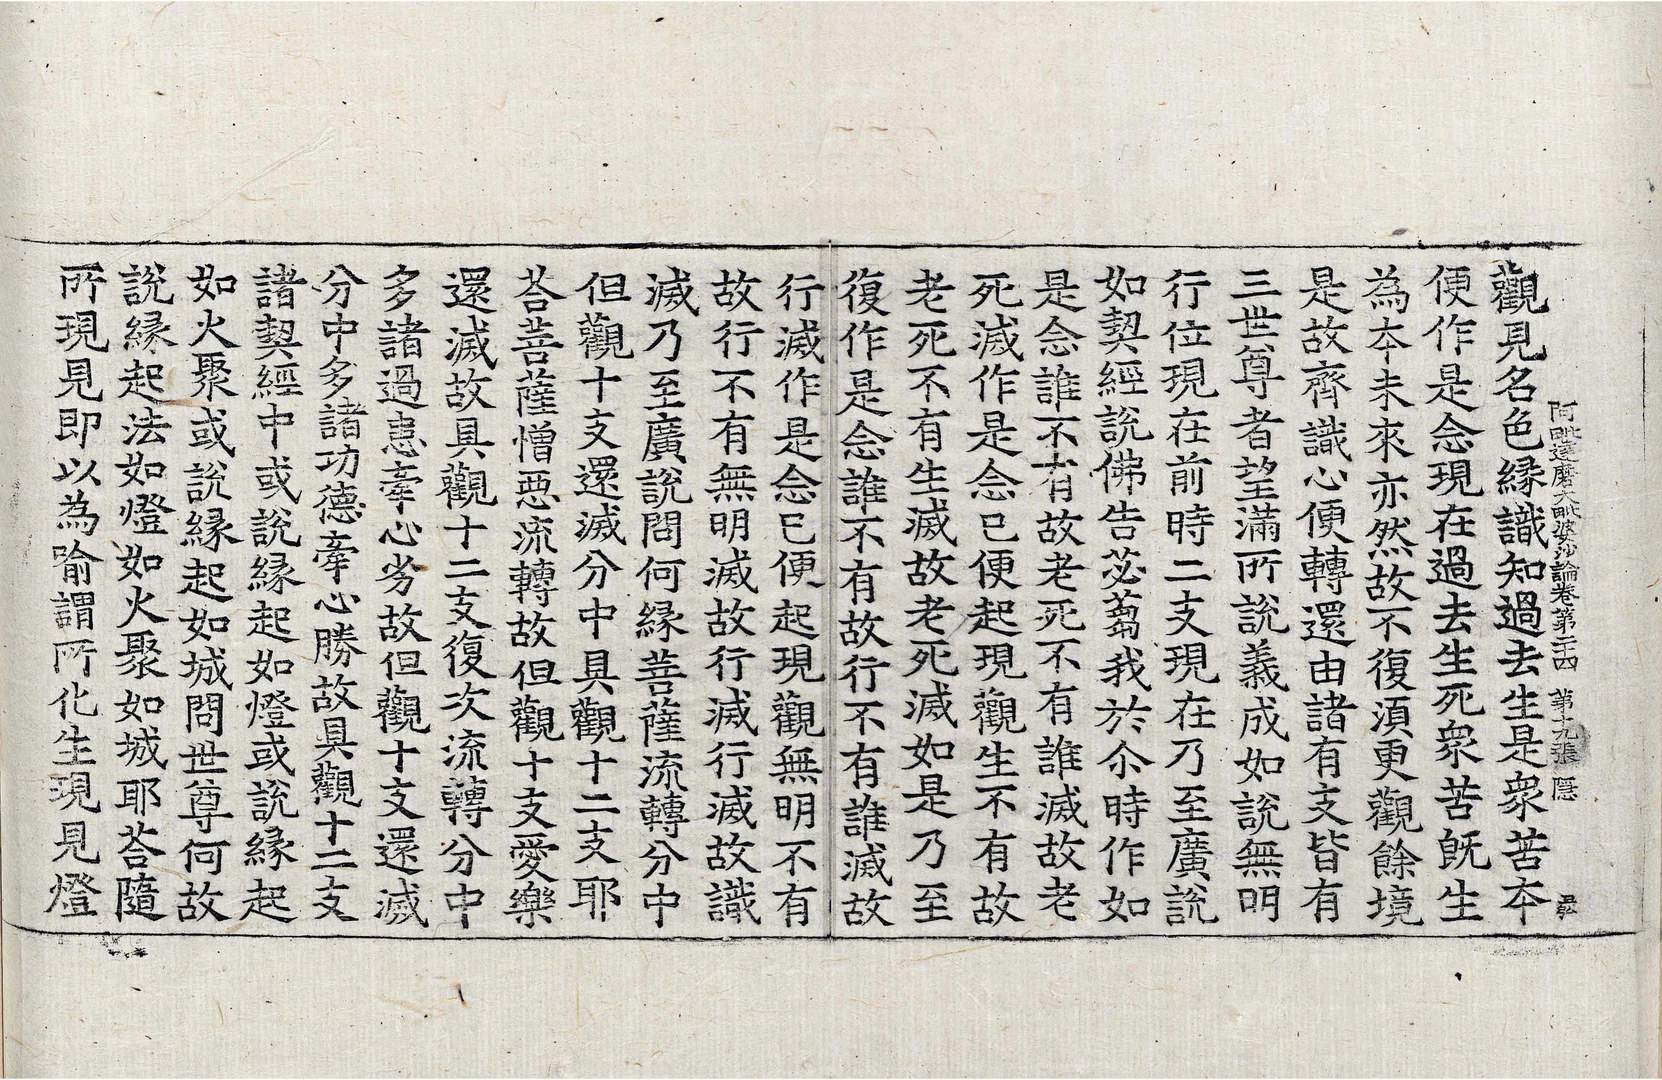 阿毗達磨大毗婆沙論卷第二十四 第九張 隱
觀見名色縁識知過去生是衆苦本
便作是念現在過去生死衆苦旣生
為本未來亦然故不復湏更觀餘境
是故齊識心便轉還由諸有支皆有
三世尊者望滿所說義成如說無明
行位現在前時二支現在乃至廣說
如契經說佛告苾蒭我於尒時作如
是念誰不有故老死不有誰滅故老
死滅作是念已便起現觀生不有故
老死不有生滅故老死滅如是乃至
復作是念誰不有故行不有誰滅故
行滅作是念已便起現觀無明不有
故行不有無明滅故行滅行滅故識
滅乃至廣說問何縁菩薩流轉分中
但觀十支還滅分中具觀十二支耶
荅菩薩憎惡流轉故但觀十支愛樂
還滅故具觀十二支復次流轉分中
多諸過患牽心劣故但觀十支還滅
分中多諸功德牽心勝故具觀十二支
諸契經中或說縁起如燈或說縁起
如火聚或說縁起如城問世尊何故
說縁起法如燈如火聚如城耶荅隨
所現見即以為喻謂所化生現見燈